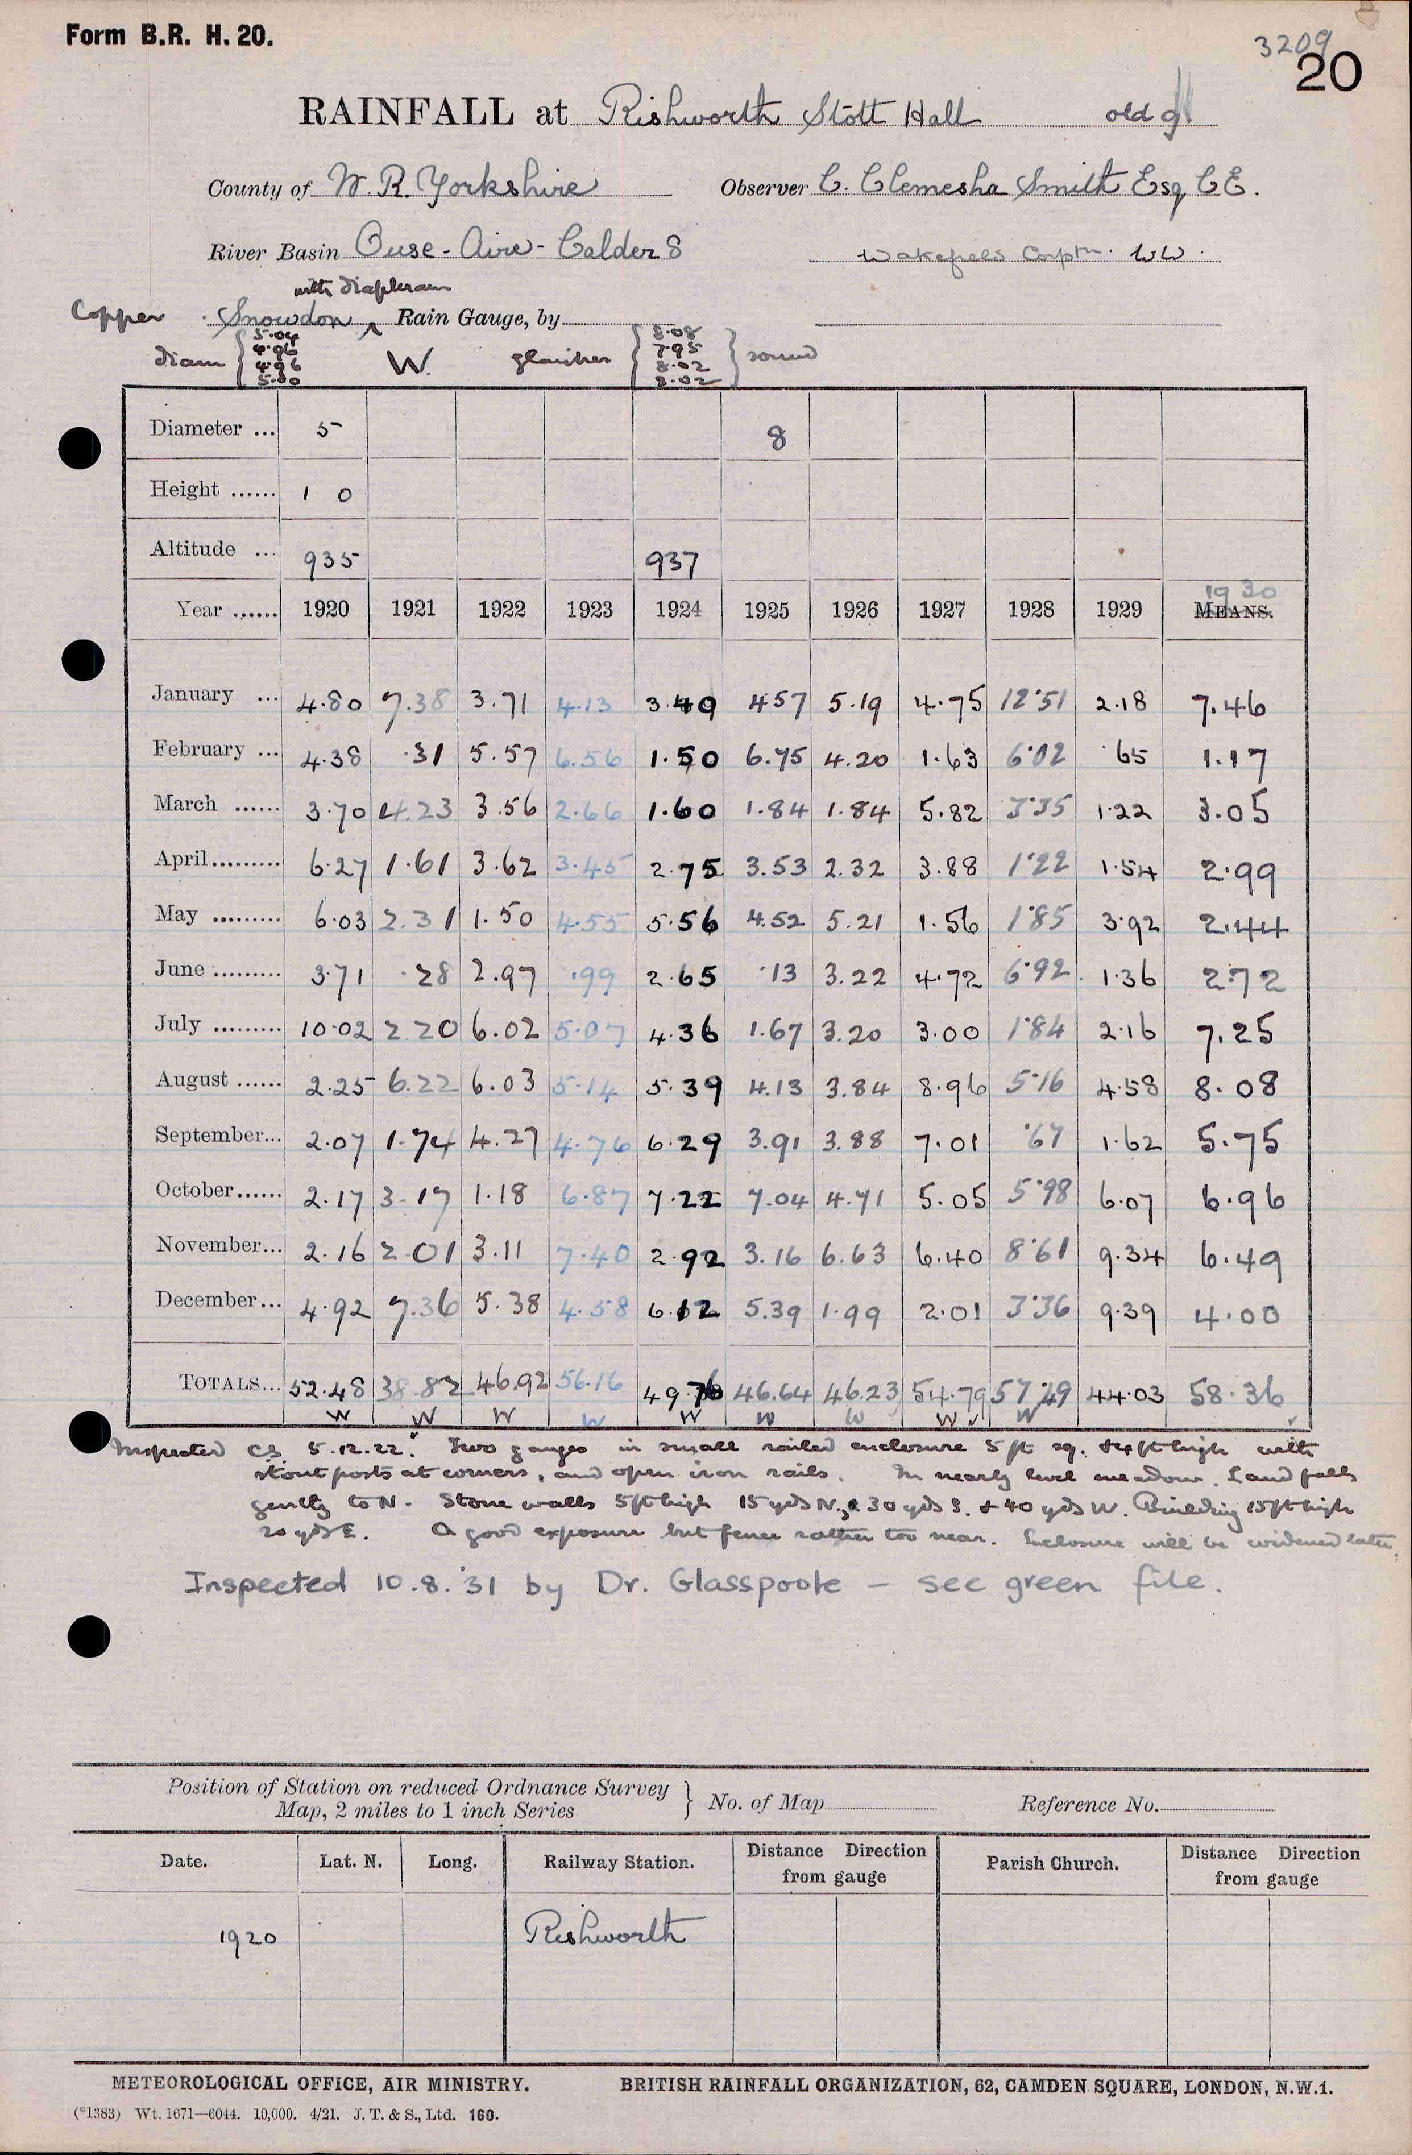 Form B.R. H. 20.
3209
20
RAINFALL at Rishworth Stott Hall old g
County of W. R. Yorkshire Observer C. Clemesha Smith Esq C.E.
River Basin Ouse - Aire - Calder 8 Wakefield Corptn. W.W.
with diaphram
Copper Snowdon ^ Rain Gauge, by
diam { 5.04 4.96 4.96 5.00 W. glaisher { 8.08 7.95 8.02 8.02 } round
Diameter ... 5 8
Height ...... 1 0
Altitude ... 935 937
Year ...... 1920 1921 1922 1923 1924 1925 1926 1927 1928 1929 MEANS. 1930
January ... 4.80 7.38 3.71 4.13 3.40 4.57 5.19 4.75 12.51 2.18 7.46
February ... 4.38 .31 5.57 6.56 1.50 6.75 4.20 1.63 6.02 .65 1.17
March ...... 3.70 4.23 3.56 2.66 1.60 1.84 1.84 5.82 3.35 1.22 3.05
April ......... 6.27 1.61 3.62 3.45 2.75 3.53 2.32 3.88 1.22 1.54 2.99
May ......... 6.03 2.31 1.50 4.55 5.56 4.52 5.21 1.56 1.85 3.92 2.44
June ......... 3.71 .28 2.97 .99 2.65 .13 3.22 4.72 6.92 1.36 2.72
July ......... 10.02 2.20 6.02 5.07 4.36 1.67 3.20 3.00 1.84 2.16 7.25
August ...... 2.25 6.22 6.03 5.14 5.39 4.13 3.84 8.96 5.16 4.58 8.08
September... 2.07 1.74 4.27 4.76 6.29 3.91 3.88 7.01 .67 1.62 5.75
October...... 2.17 3.17 1.18 6.87 7.22 7.04 4.71 5.05 5.98 6.07 6.96
November... 2.16 2.01 3.11 7.40 2.92 3.16 6.63 6.40 8.61 9.34 6.49
December... 4.92 7.36 5.38 4.58 6.12 5.39 1.99 2.01 3.36 9.39 4.00
TOTALS... 52.48 38.82 46.92 56.16 49.76 46.64 46.23 54.79 57.49 44.03 58.36
W W W W W W W W ✓ W ✓
Inspected C.S. 5.12.22. Two gauges in small railed enclosure 5 ft sq. & 4 ft high with
stout posts at corners, and open iron rails. In nearly level meadow. Land falls
gently to N. Stone walls 5 ft high 15 yds N, & 30 yds S. & 40 yds W. Building 15 ft high
20 yds E. A good exposure but fence rather too near. Enclosure will be widened later.
Inspected 10.8.'31 by Dr. Glasspoole – see green file.
Position of Station on reduced Ordnance Survey
Map, 2 miles to 1 inch Series } No. of Map Reference No.
Date. Lat. N. Long. Railway Station. Distance Direction from gauge Parish Church. Distance Direction from gauge
1920 Rishworth
METEOROLOGICAL OFFICE, AIR MINISTRY. BRITISH RAINFALL ORGANIZATION, 62, CAMDEN SQUARE, LONDON, N.W.1.
(*1383) Wt. 1671—6044. 10,000. 4/21. J. T. & S., Ltd. 160.